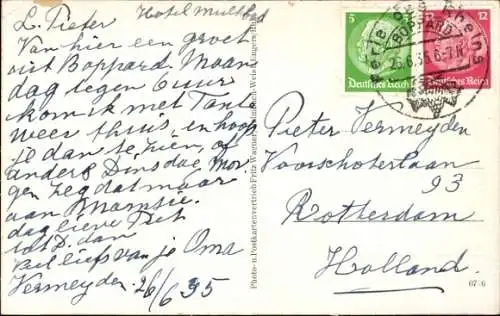 Hotel Mulbad
L. Pieter
Van hier een groet
uit Boppard. Maan
dag tegen 6 uur
kom ik met Tante
weer thuis, en hoop
je dan te zien, of
anders Dinsdag Mor
gen zeg dat maar
aan Mamsie.
dag lieve Piet
tot D. dam
veel liefs van je Oma
Vermeyden 26/6 35
Photo- u. Postkartenvertrieb Fritz Wagner
5
Deutsches Reich
12
Deutsches Reich
Perle des Rheins
BOPPARD
26.6.35.6-7 N
Pieter Vermeyden
Voorschoterlaan
93
Rotterdam
Holland.